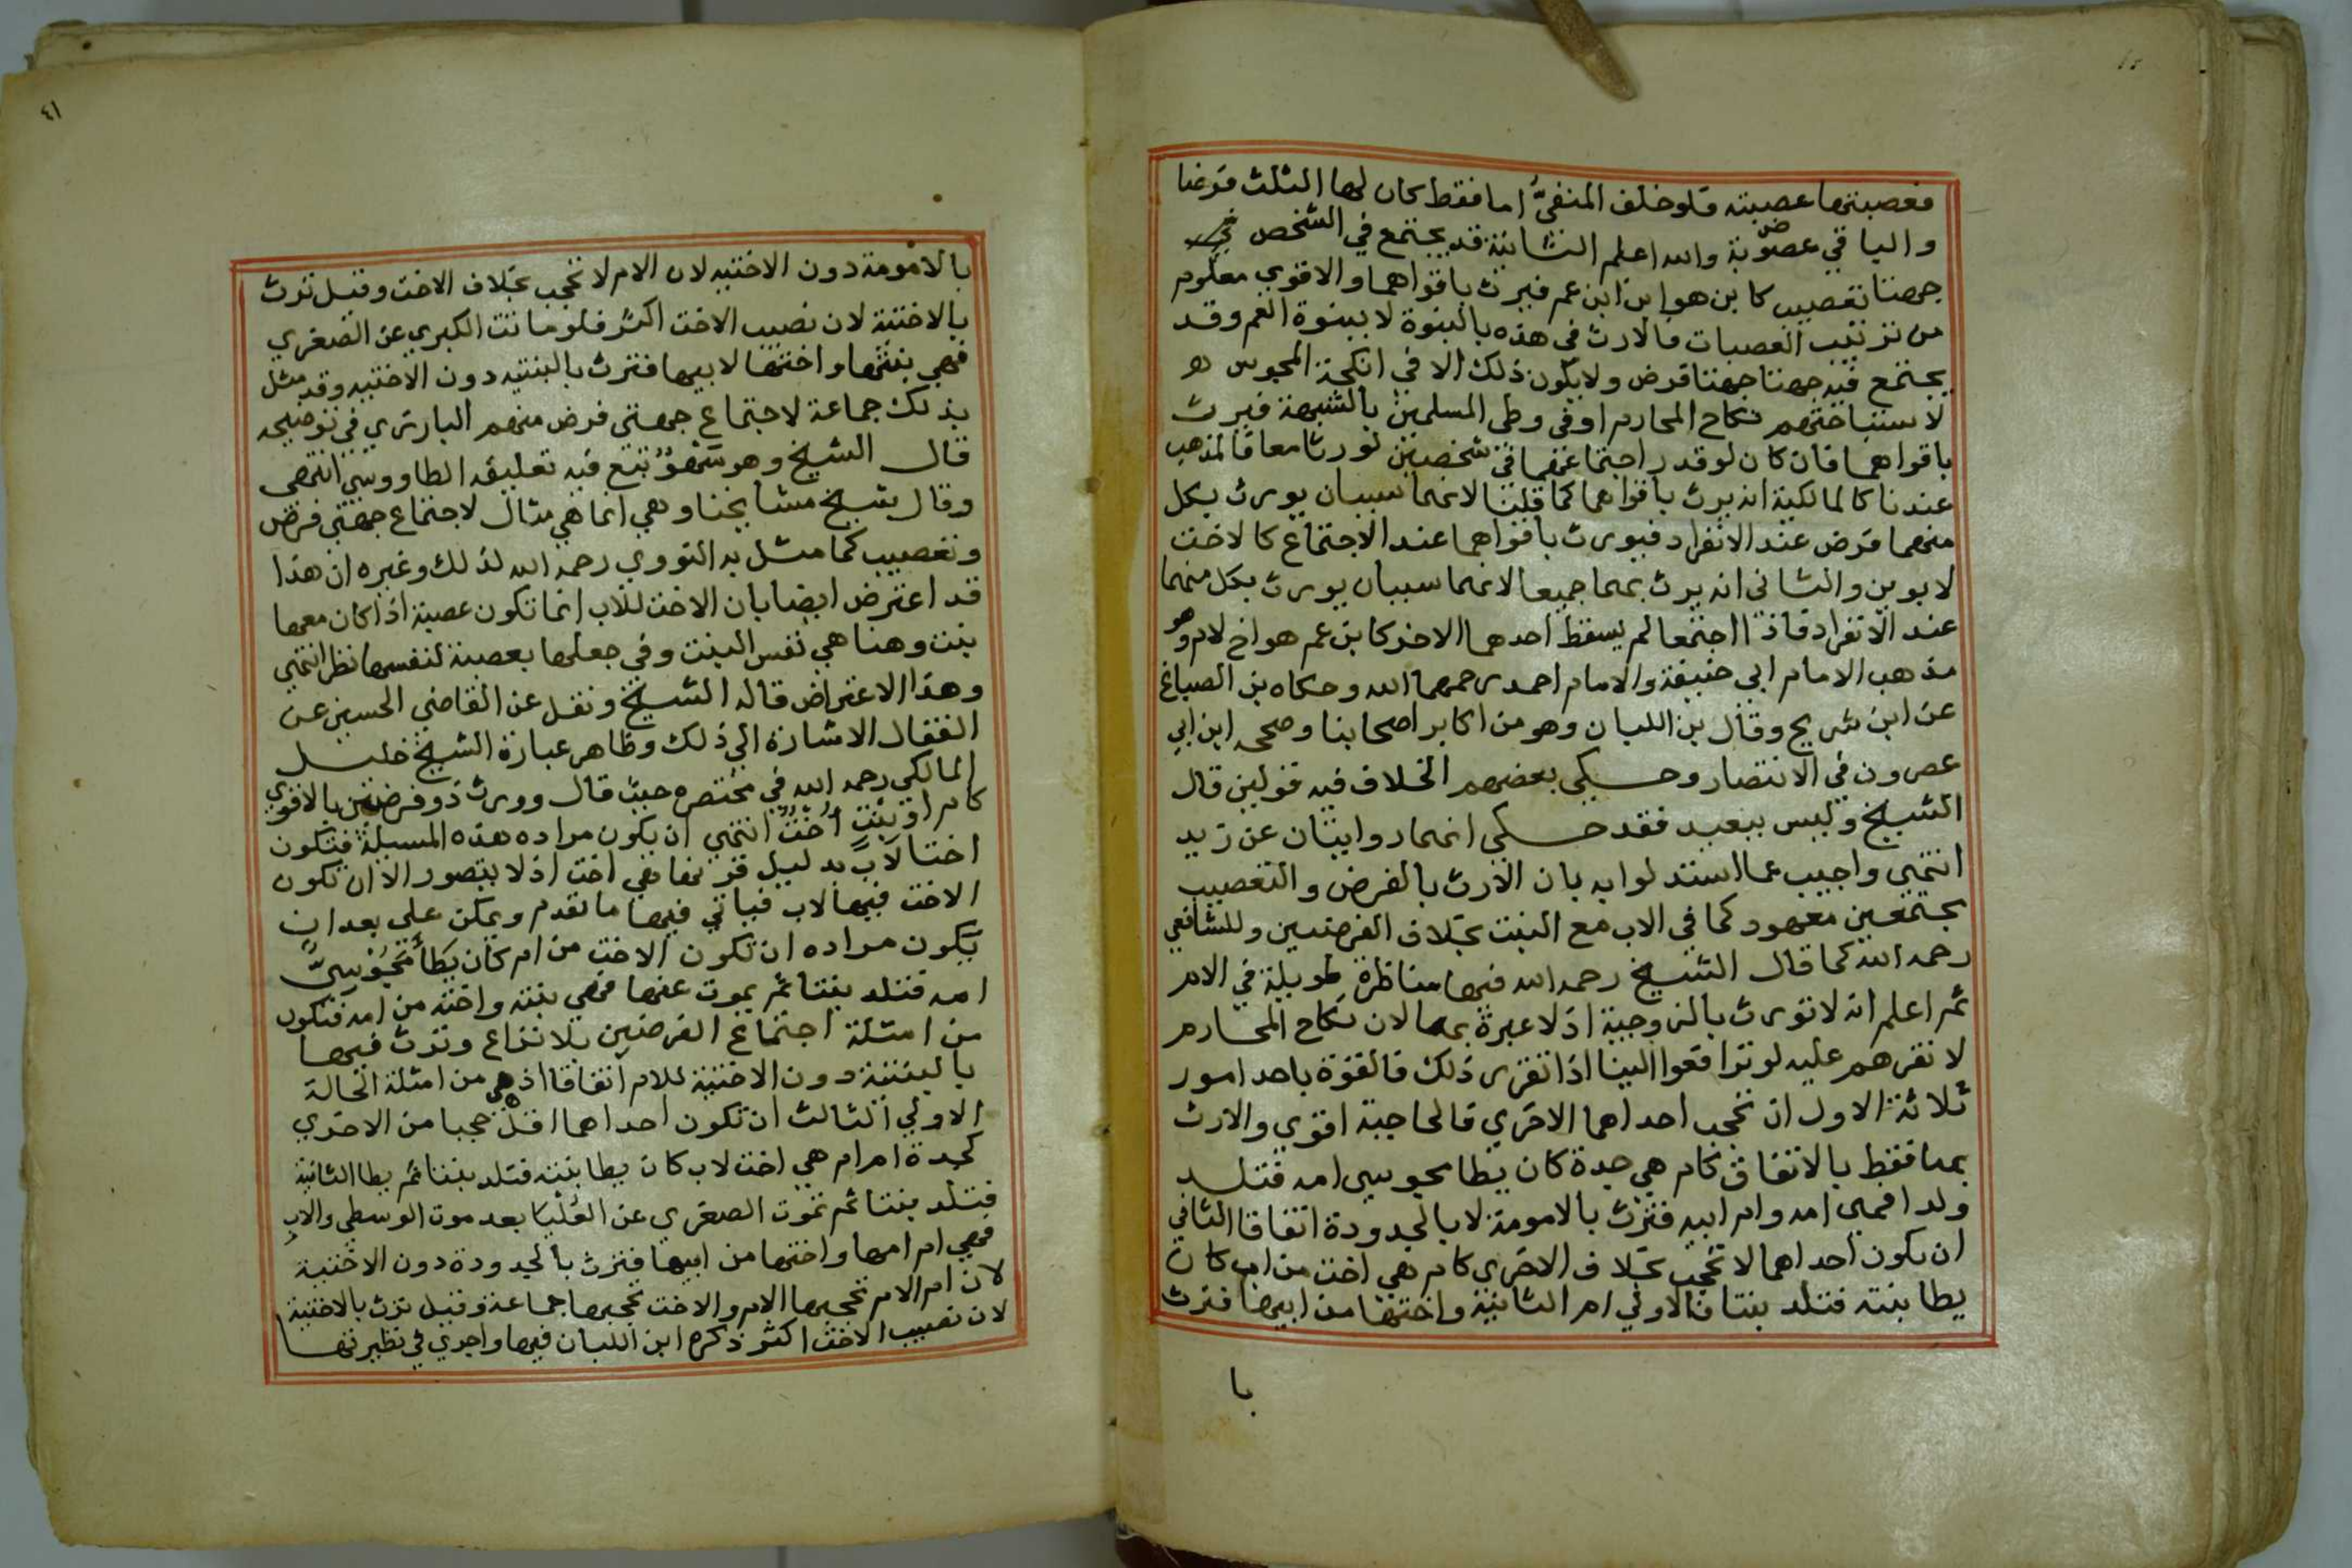 فعصبتها عصبته فلو خلف المنفيُّ اما فقط كان لها الثلث فرضا
والباقي عصوبة والله اعلم الثانية قد يجتمع في الشخص
جهتا تعصيب كابن هو ابن ابن عم فيرث باقواهما والاقوي معلوم
من ترتيب العصبات فالارث في هذه بالبنوة لا ببنوة العم وقد
يجتمع فيه جهتا جهتا فرض ولا يكون ذلك الا في انكحة المجوس
لاستباحتهم نكاح المحارم او في وطي المسلمين بالشبهة فيرث
باقواهما فان كان لو قدر اجتماعهما في شخصين لورثا معا فالمذهب
عندنا كالمالكية انه يرث باقواهما كما قلنا لانهما سببان يورث بكل
منهما فرض عند الانفراد فيورث باقواهما عند الاجتماع كالاخت
لابوين والثاني انه يرث بهما جميعا لانهما سببان يورث بكل منهما
عند الانفراد فاذا اجتمعا لم يسقط احدهما الاخر كابن عم هو اخ لام وهو
مذهب الامام ابي حنيفة والامام احمد رحمهما الله وحكاه بن الصباغ
عن ابن شريح وقال بن اللبان وهو من اكابر اصحابنا وصححه ابن ابي
عصرون في الانتصار وحكي بعضهم الخلاف فيه قولين قال
الشيخ وليس ببعيد فقد حكى انهما روايتان عن زيد
انتهي واجيب عما استدلوا به بان الارث بالفرض والتعصيب
مجتمعين معهود كما في الاب مع البنت بخلاف الفرضين وللشافعي
رحمه الله كما قال الشيخ رحمه الله فيها مناظرة طويلة في الام
ثم اعلم انه لا تورث بالزوجية اذ لا عبرة بها لان نكاح المحارم
لا نقرهم عليه لو ترافعوا الينا اذا تقرر ذلك فالقوة باحد امور
ثلاثة الاول ان تحجب احداهما الاخري فالحاجبة اقوي والارث
بها فقط بالاتفاق كام هي جدة كان يطا مجوسي امه فتلد
ولدا فهي امه وام ابيه فترث بالامومة لا بالجدودة اتفاقا الثاني
ان يكون احداهما لا تحجب بخلاف الاخري كام هي اخت من اب كان
يطا بنته فتلد بنتا فالاولي ام الثانية واختها من ابيها فترث
با
٤١
بالامومة دون الاختيه لان الام لا تحجب بخلاف الاخت وقيل ترث
بالاختية لان نصيب الاخت اكثر فلو ماتت الكبري عن الصغري
فهي بنتها واختها لابيها فترث بالبنتيه دون الاختيه وقد مثل
بذلك جماعة لاجتماع جهتي فرض منهم البارزي في توضيحه
قال الشيخ وهو سَهْوٌ تبع فيه تعليقه الطاووسي انتهي
وقال شيخ مشايخنا وهي انما هي مثال لاجتماع جهتي فرض
وتعصيب كما مثل به النووي رحمه الله لذلك وغيره ان هذا
قد اعترض ايضا بان الاخت للاب انما تكون عصبة اذا كان معها
بنت وهنا هي نفس البنت وفي جعلها بعصبة لنفسها نظر انتهي
وهذا الاعتراض قاله الشيخ ونقل عن القاضي الحسين عن
القفال الاشارة الي ذلك وظاهر عبارة الشيخ خليل
المالكي رحمه الله في مختصره حيث قال وورث ذو فرضين بالاقوي
كام او بنْتٍ اُخْتٌ انتهي ان يكون مراده هذه المسيلة فتكون
اختا لابٍ بدليل قرنها بهي اخت اذ لا يتصور الا ان تكون
الاخت فيها لاب فياتي فيها ما تقدم ويمكن علي بعد ان
يكون مراده ان تكون الاخت من ام كان يَطَأَ مَجُوْسِيٌّ
امه فتلد بنتا ثم يموت عنها فهي بنته واخته من امه فتكون
من امثلة اجتماع الفرضين بلا نزاع وترث فيها
بالبنتية دون الاختية للام اتفاقا اذ هي من امثلة الحالة
الاولي الثالث ان تكون احداهما اقل حجبا من الاخري
كجدة ام ام هي اخت لاب كان يطا بنته فتلد بنتا ثم يطا الثانية
فتلد بنتا ثم تموت الصغري عن العُلْيَا بعد موت الوسطي والابِ
فهي ام امها واختها من ابيها فترث بالجدودة دون الاختية
لان ام الام تحجبها الام والاخت تحجبها جماعة وقيل ترث بالاختية
لان نصيب الاخت اكثر ذكره ابن اللبان فيها واجري في نظيرتها